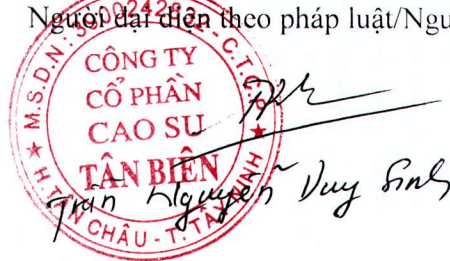 Người đại diện theo pháp luật/Ngư
M.S.D.N: 3900242832 - C.T.C.P
CÔNG TY
CỔ PHẦN
CAO SU
TÂN BIÊN
H. TÂN CHÂU - T. TÂY NINH
Trần Nguyễn Duy Sinh